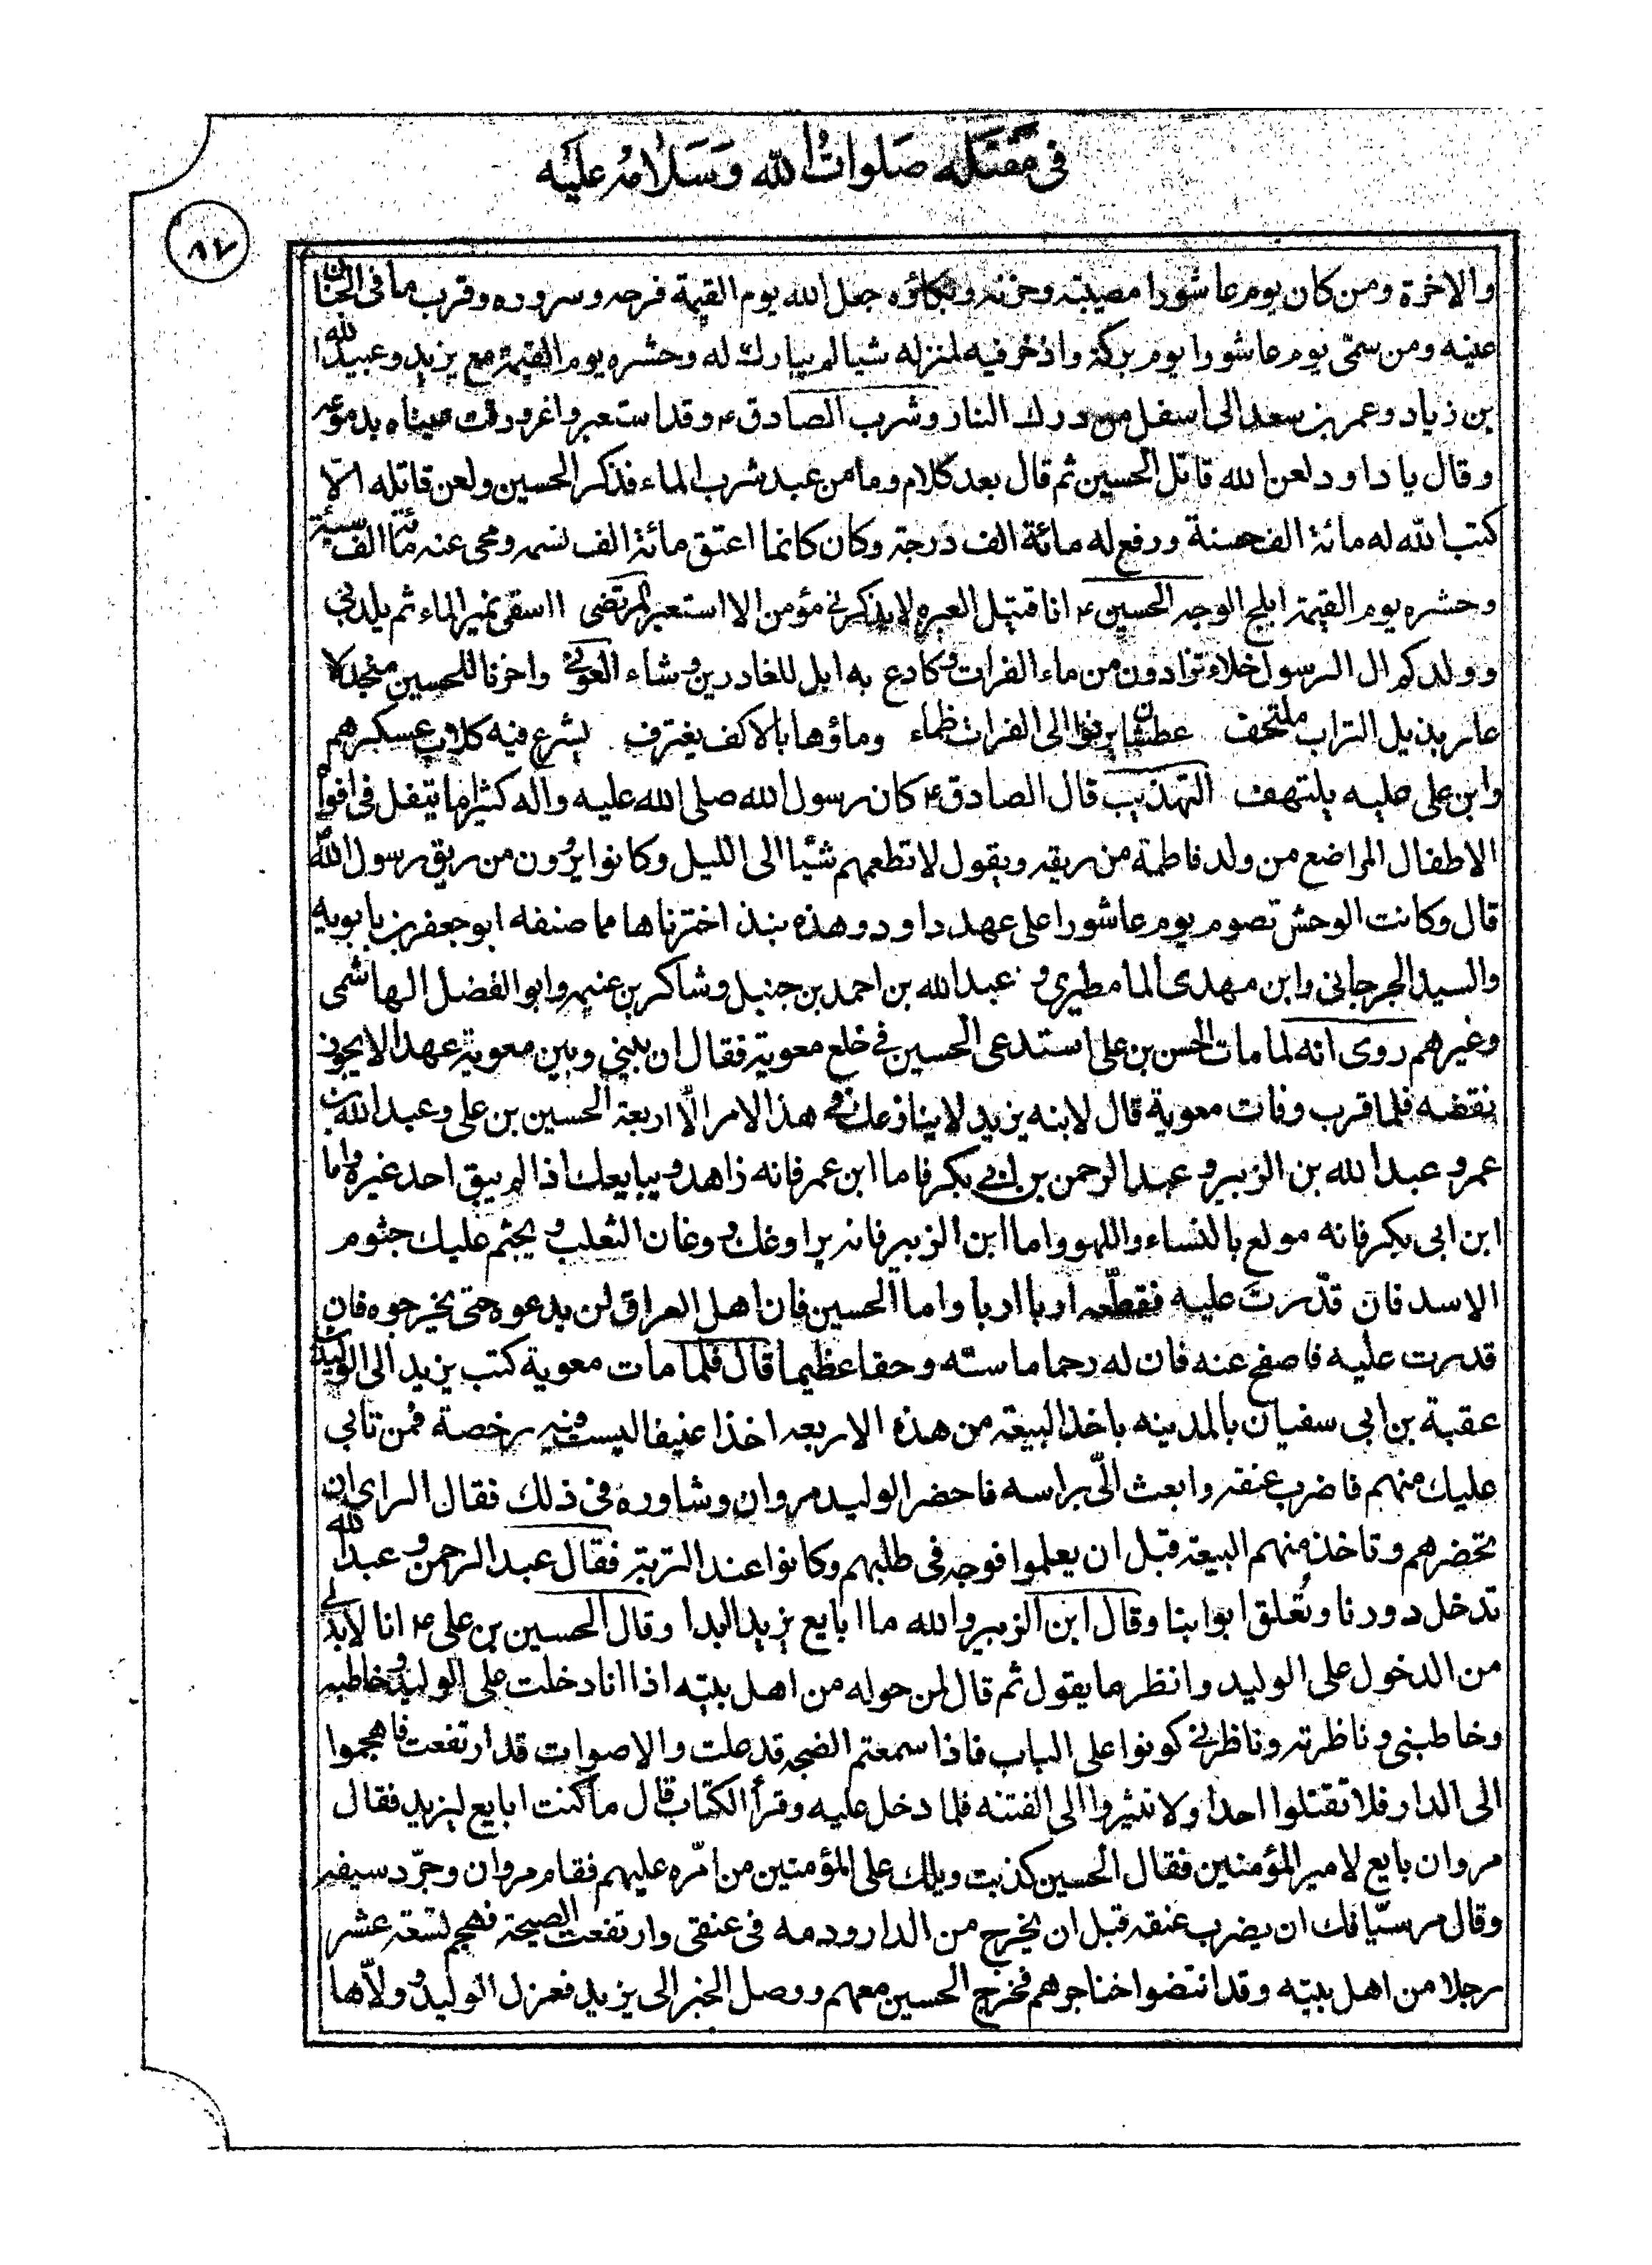 في مقتله صلوات الله وسلامه عليه
٨٧
والاخرة ومن كان يوم عاشورا مصيبته وحزنه وبكاؤه جعل الله يوم القيمة فرحه وسروره وقرب ما في الجنان
عينه ومن سمّى يوم عاشورا يوم بركة واذخر فيه لمنزله شيا لم يبارك له وحشره يوم القيمة مع يزيد وعبيد الله
بن زياد وعمر بن سعد الى اسفل من درك النار وشرب الصادق ع وقد استعبر واغرورقت عيناه بدموعه
وقال يا داود لعن الله قاتل الحسين ثم قال بعد كلام وما من عبد شرب الماء فذكر الحسين ولعن قاتله الّا
كتب الله له مائة الف حسنة ورفع له مائة الف درجة وكان كانما اعتق مائة الف نسمه ومحى عنه مائة الف سيئة
وحشره يوم القيمة ابلج الوجه الحسين ع انا قتيل العبره لا يذكرني مؤمن الا استعبر المرتضى ااسقى نمير الماء ثم يلذ لي
وولدكم ال الرسول خلاء تزادون من ماء الفرات وكادع به ابل للغادرين وشاء العوني واحزنا للحسين منجدلا
عار بذيل التراب ملتحف عطشان يرنو الى الفرات ظماء وماؤها بالاكف يغترف يشرع فيه كلاب عسكرهم
وابن علي عليه يلتهف التهذيب قال الصادق ع كان رسول الله صلى الله عليه واله كثيرا ما يتفل في افواه
الاطفال المراضع من ولد فاطمة من ريقه ويقول لا تطعمهم شئيا الى الليل وكانوا يروون من ريق رسول الله
قال وكانت الوحش تصوم يوم عاشورا على عهد داود وهذه نبذ اخترناها مما صنفه ابو جعفر بن بابويه
والسيد الجرجاني وابن مهدى المامطيري و عبد الله بن احمد بن حنبل وشاكر بن غنيمه وابو الفضل الهاشمى
وغيرهم روى انه لما مات الحسن بن علي استدعى الحسين في خلع معوية فقال ان بيني وبين معوية عهدا لا يجوز
نقضه فلما قرب وفات معوية قال لابنه يزيد لا ينازعك في هذا الامر الّا اربعة الحسين بن علي وعبد الله بن
عمر و عبد الله بن الزبير و عبد الرحمن بن ابي بكر فاما ابن عمر فانه زاهد ويبايعك اذا لم يبق احد غيره واما
ابن ابى بكر فانه مولع بالنساء واللهو واما ابن الزبير فانه يراوغك روغان الثعلب ويجثم عليك جثوم
الاسد فان قدّرت عليه فقطّعه اربا اربا واما الحسين فان اهل العراق لن يدعوه حتى يخرجوه فان
قدرت عليه فاصفح عنه فان له رحما ماسته وحقا عظيما قال فلما مات معوية كتب يزيد الى الوليد بن
عقبة بن ابي سفيان بالمدينه باخذ البيعة من هذه الاربعه اخذا عنيفا ليست فيه رخصة فمن تابي
عليك منهم فاضرب عنقه وابعث الّي براسه فاحضر الوليد مروان وشاوره في ذلك فقال الراي ان
تحضرهم وتاخذ منهم البيعة قبل ان يعلموا فوجه في طلبهم وكانوا عند التربة فقال عبد الرحمن و عبد الله
تدخل دورنا وتُغلق ابوابنا وقال ابن الزبير والله ما ابايع يزيد ابدا وقال الحسين بن علي ع انا لابد لي
من الدخول على الوليد وانظر ما يقول ثم قال لمن حوله من اهل بيته اذا انا دخلت على الوليد وخاطبته
وخاطبنى وناظرته وناظرني كونوا على الباب فاذا سمعتم الضجه قد علت والاصوات قد ارتفعت فاهجموا
الى الدار فلا تقتلوا احدا ولا تثيروا الى الفتنه فلما دخل عليه وقرأ الكتاب قال ما كنت ابايع ليزيد فقال
مروان بايع لامير المؤمنين فقال الحسين كذبت ويلك على المؤمنين من امّره عليهم فقام مروان وجرّد سيفه
وقال مر سيّافك ان يضرب عنقه قبل ان يخرج من الدار ودمه في عنقى وارتفعت الصيحة فهجم تسعة عشر
رجلا من اهل بيته وقد انتضوا خناجرهم فخرج الحسين معهم ووصل الخبر الى يزيد فعزل الوليد وولّاها